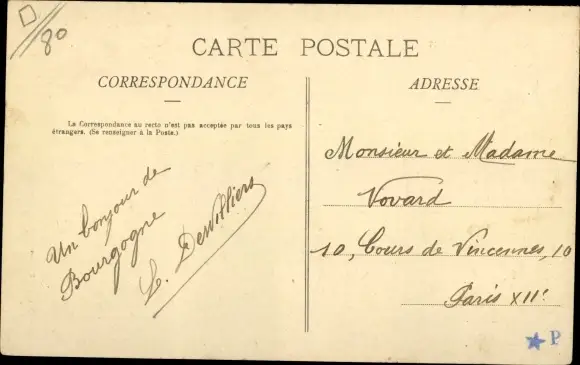 D
80
CARTE POSTALE
CORRESPONDANCE
La Correspondance au recto n'est pas acceptée par tous les pays
étrangers. (Se renseigner à la Poste.)
Un bonjour de
Bourgogne
L. DeVilliers
ADRESSE
Monsieur et Madame
Vovard
10, Cours de Vincennes, 10
Paris XIIe
P